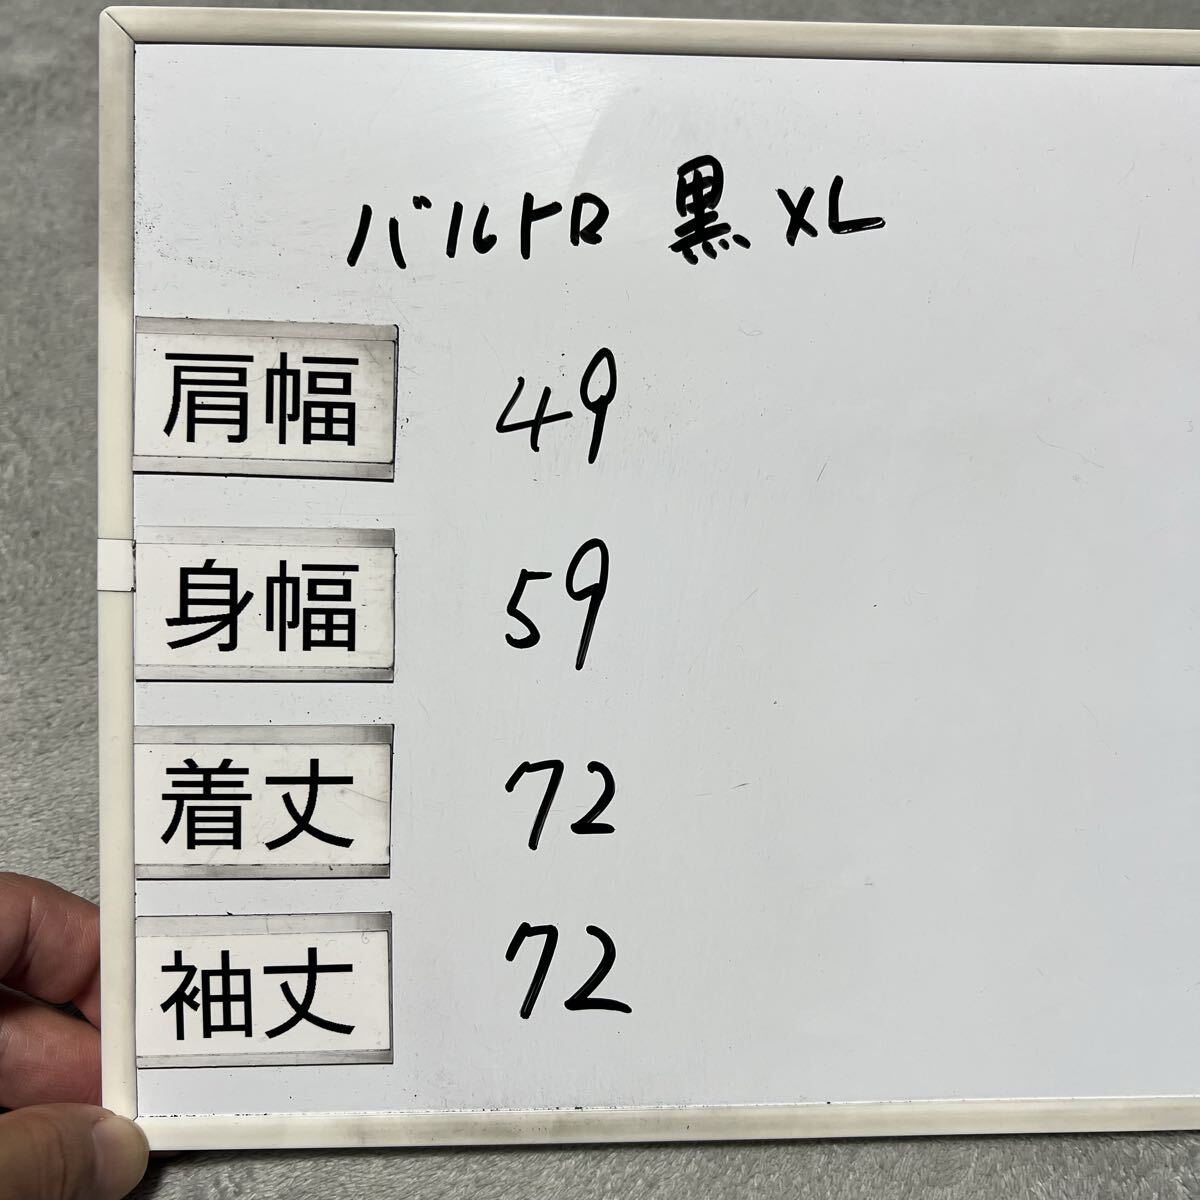 バルトロ 黒 XL
肩幅 49
身幅 59
着丈 72
袖丈 72